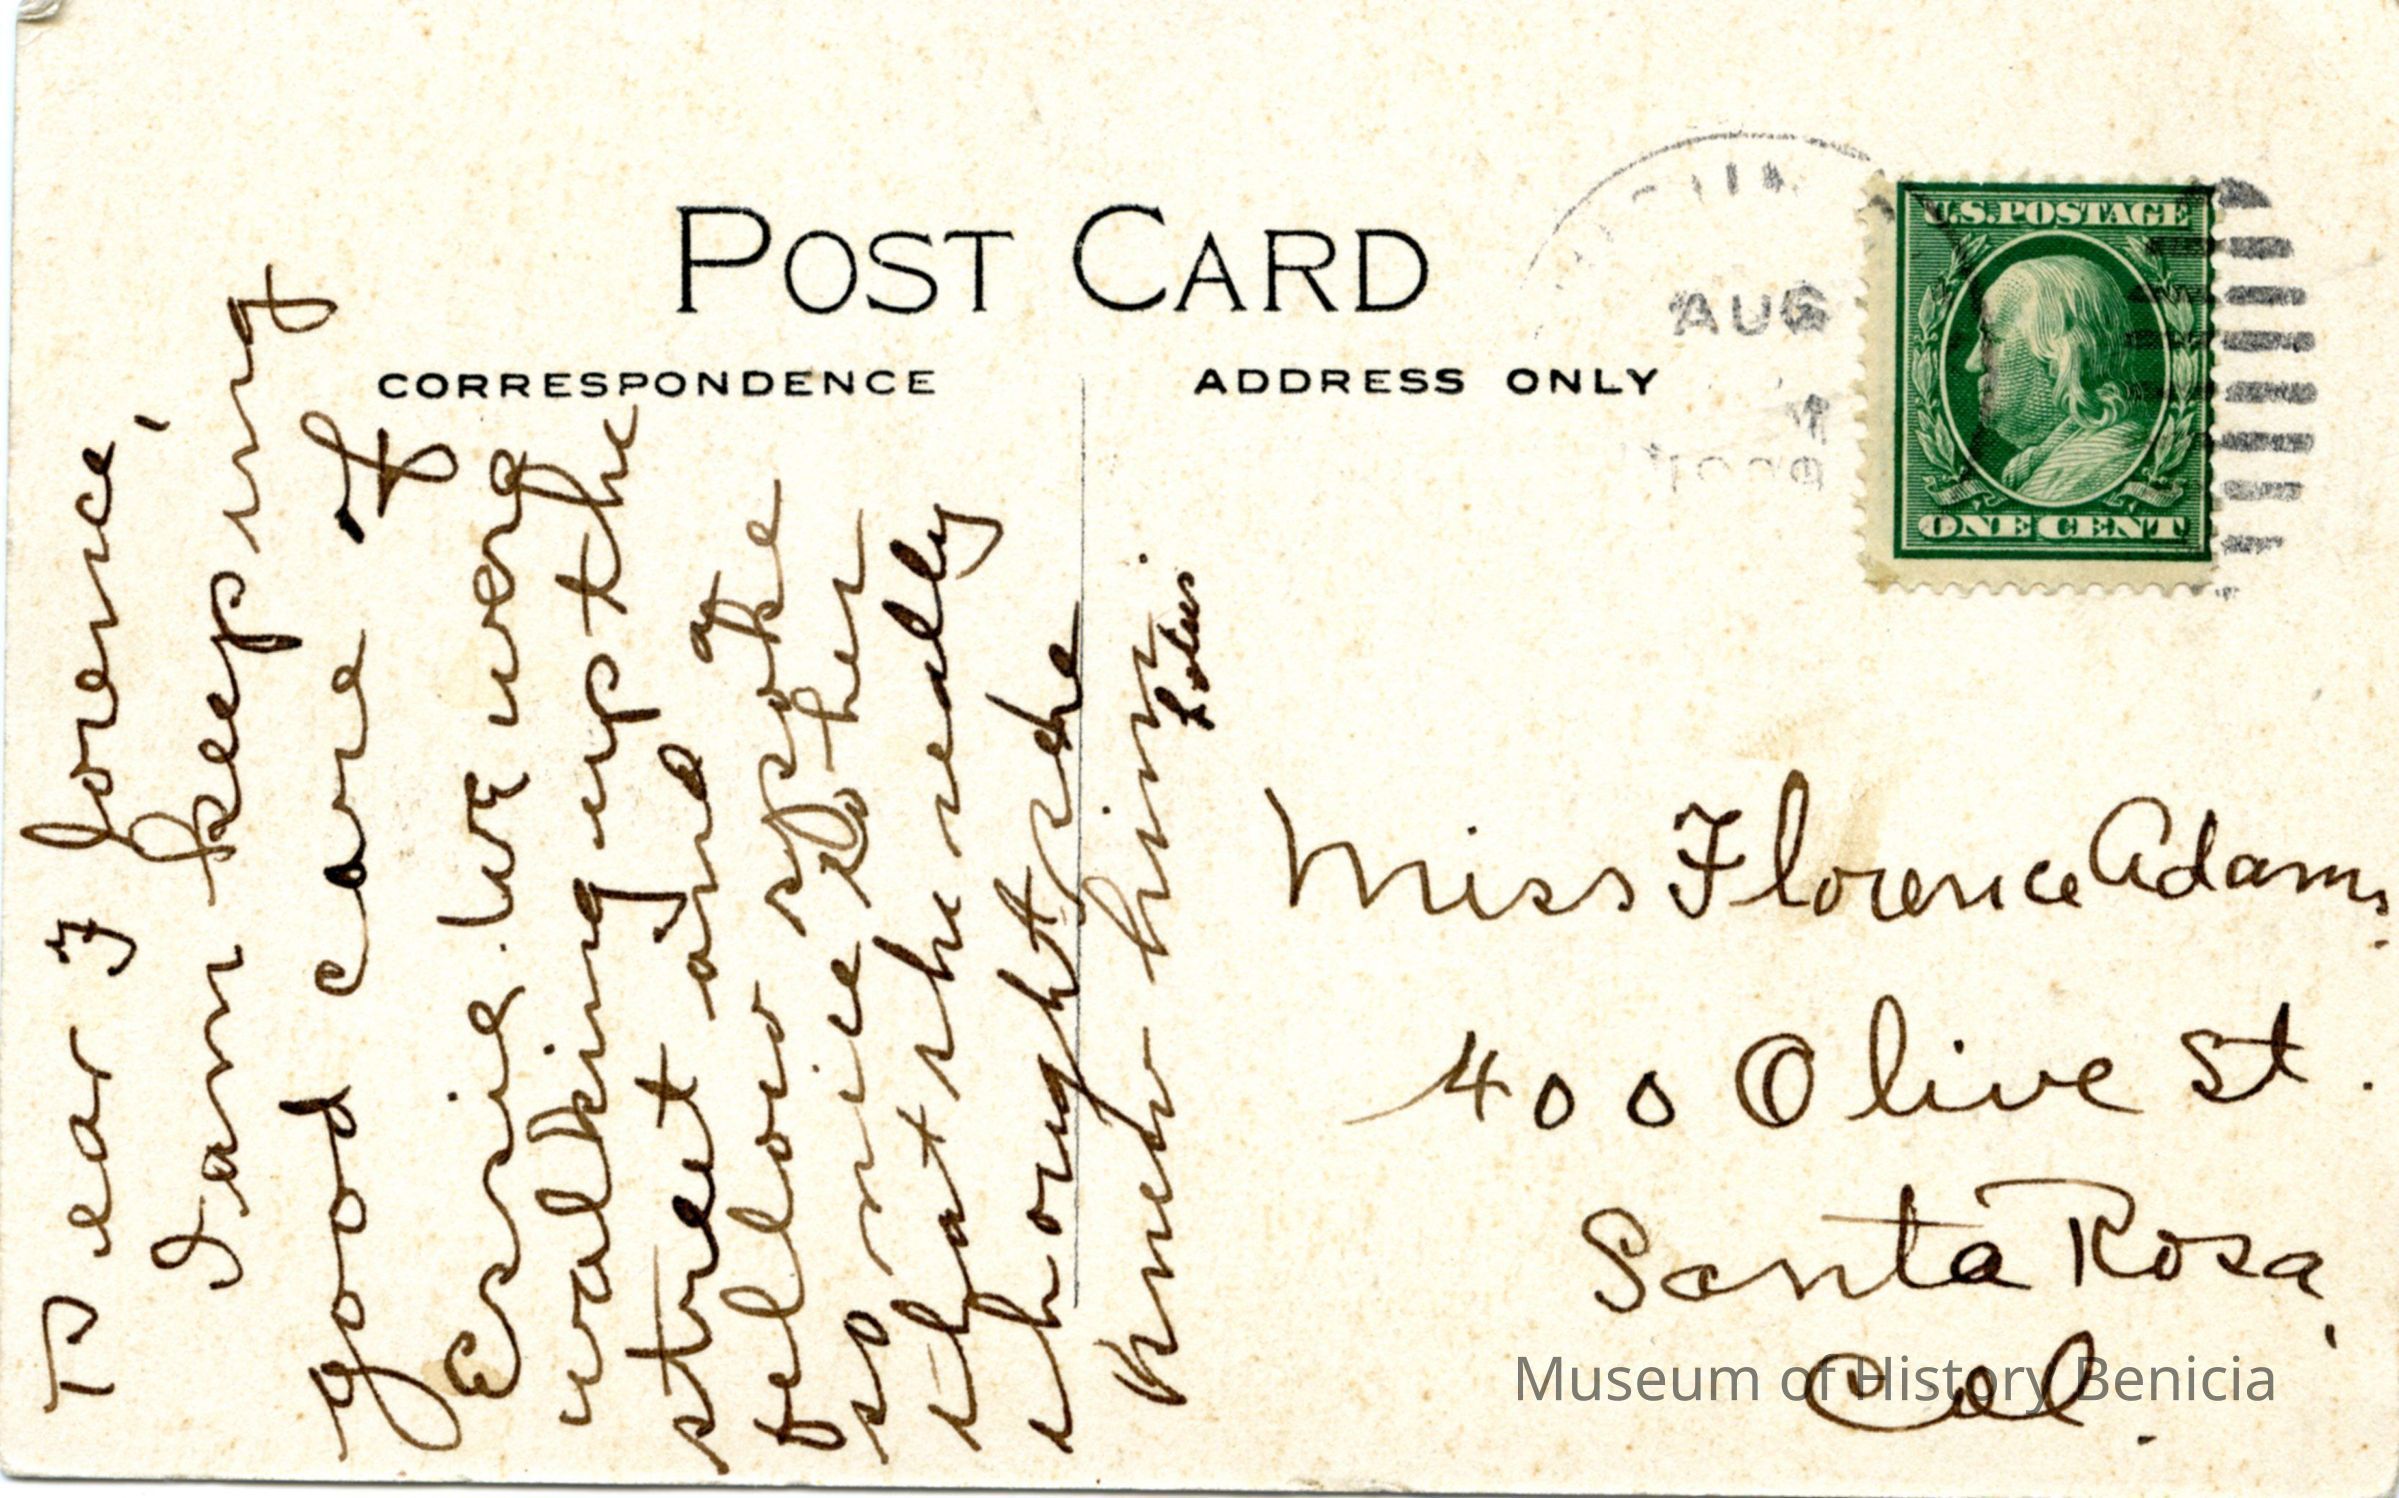 POST CARD
CORRESPONDENCE
ADDRESS ONLY
AUG
U.S.POSTAGE
ONE CENT
Dear Florence,
I am keeping
good care of
Essie. We were
walking up the
street and a
fellow spoke
so nice to her
that she really
thought she
knew him.
Miss Florence Adams.
400 Olive St.
Santa Rosa,
Cal.
Museum of History Benicia